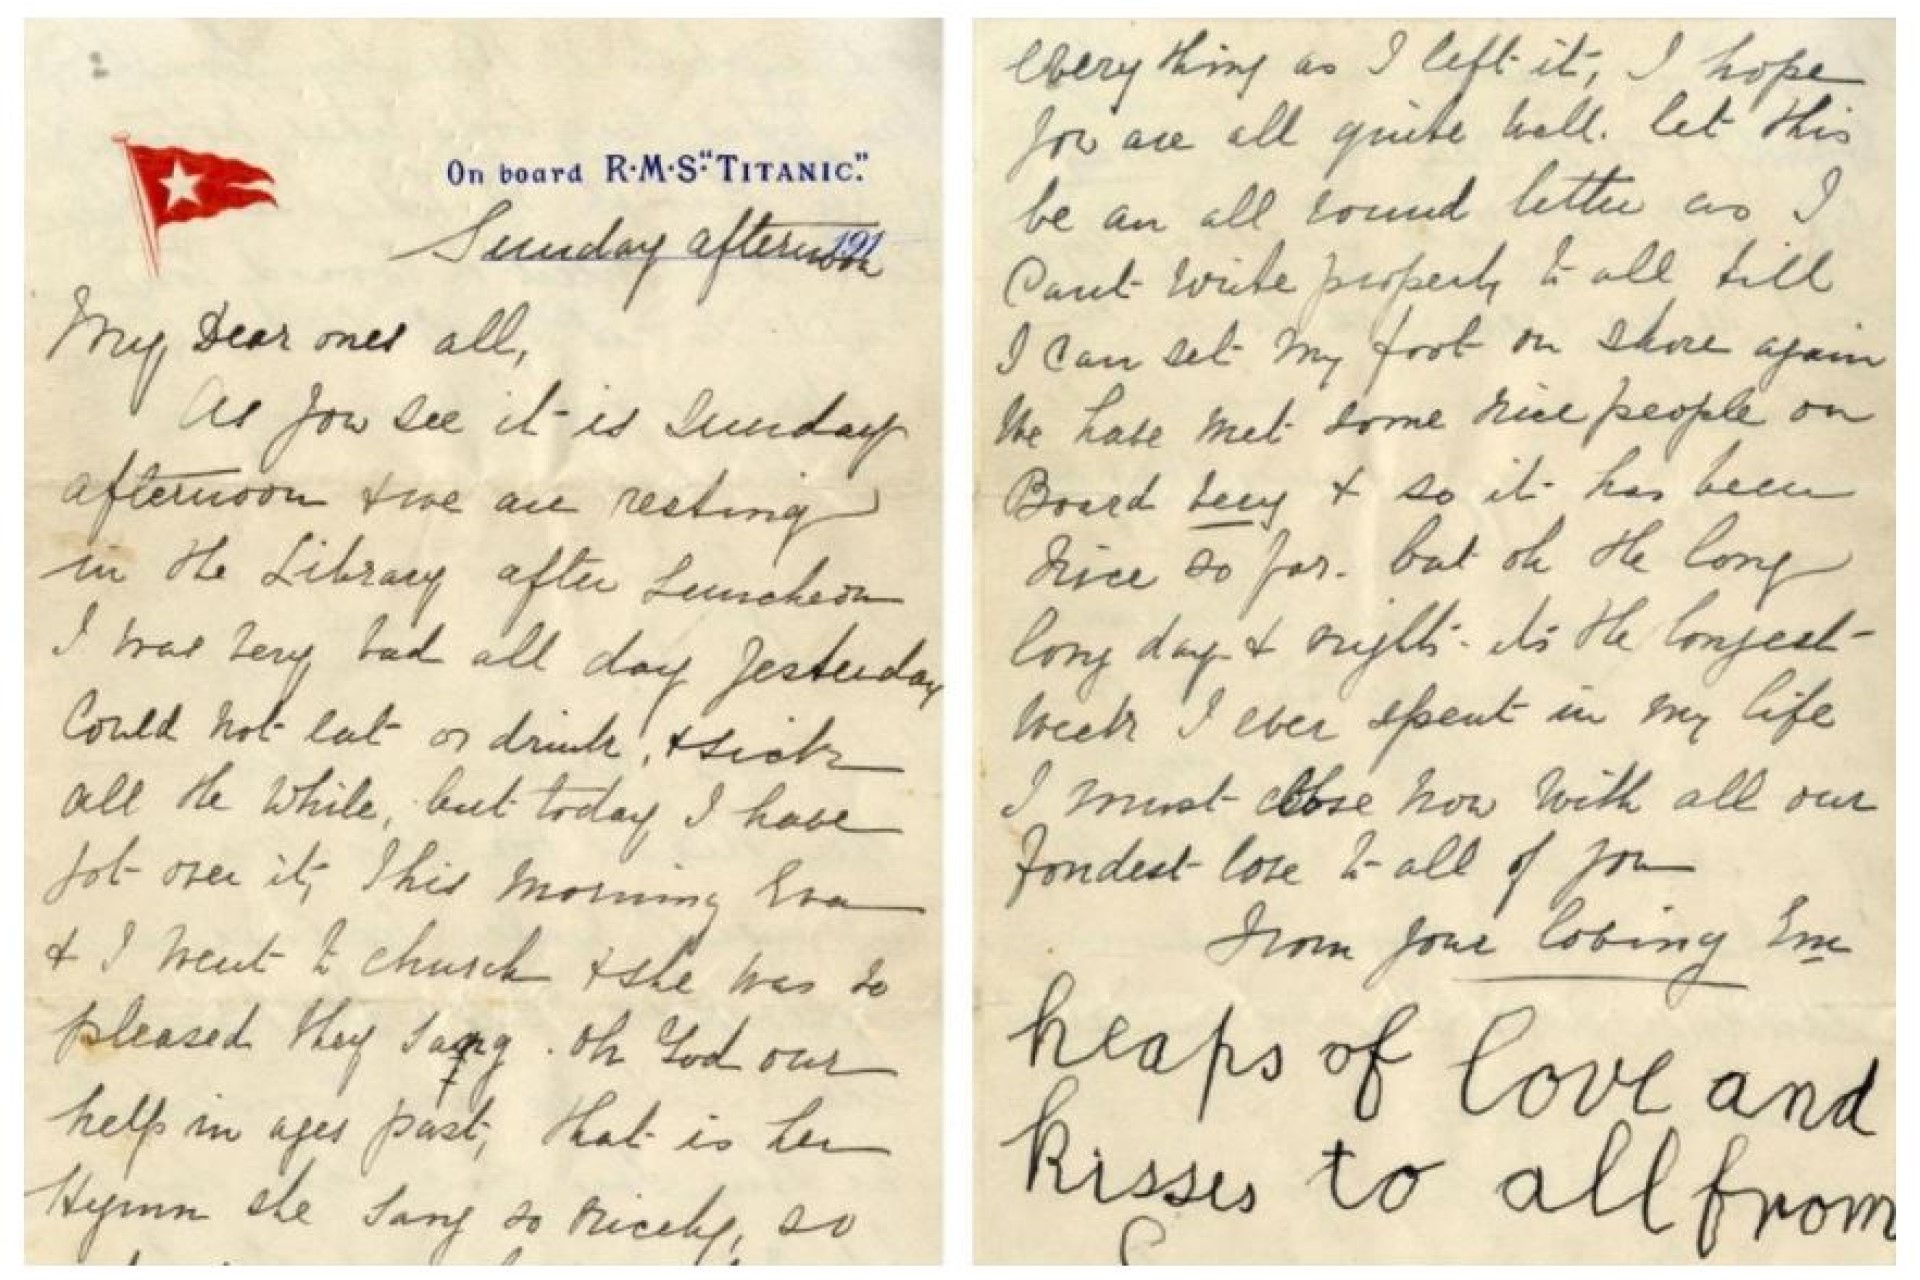 On board R·M·S·"TITANIC."
Sunday afternoon 191
My Dear ones all,
As you see it is Sunday
afternoon & we are resting
in the Library after Luncheon
I was very bad all day yesterday
Could not eat or drink, & sick
all the while, but today I have
got over it, This morning Eva
& I went to church & she was so
pleased they sang . Oh God our
help in ages past, that is her
Hymn she sang so nicely, so
everything as I left it, I hope
you are all quite well. let this
be an all round letter as I
Cant write properly to all till
I can set my foot on shore again
We have met some nice people on
Board very & so it has been
nice so far. but oh the long
long day & night. its the longest
week I ever spent in my life
I must close now with all our
fondest love to all of you
From your loving Em
heaps of love and
kisses to all from